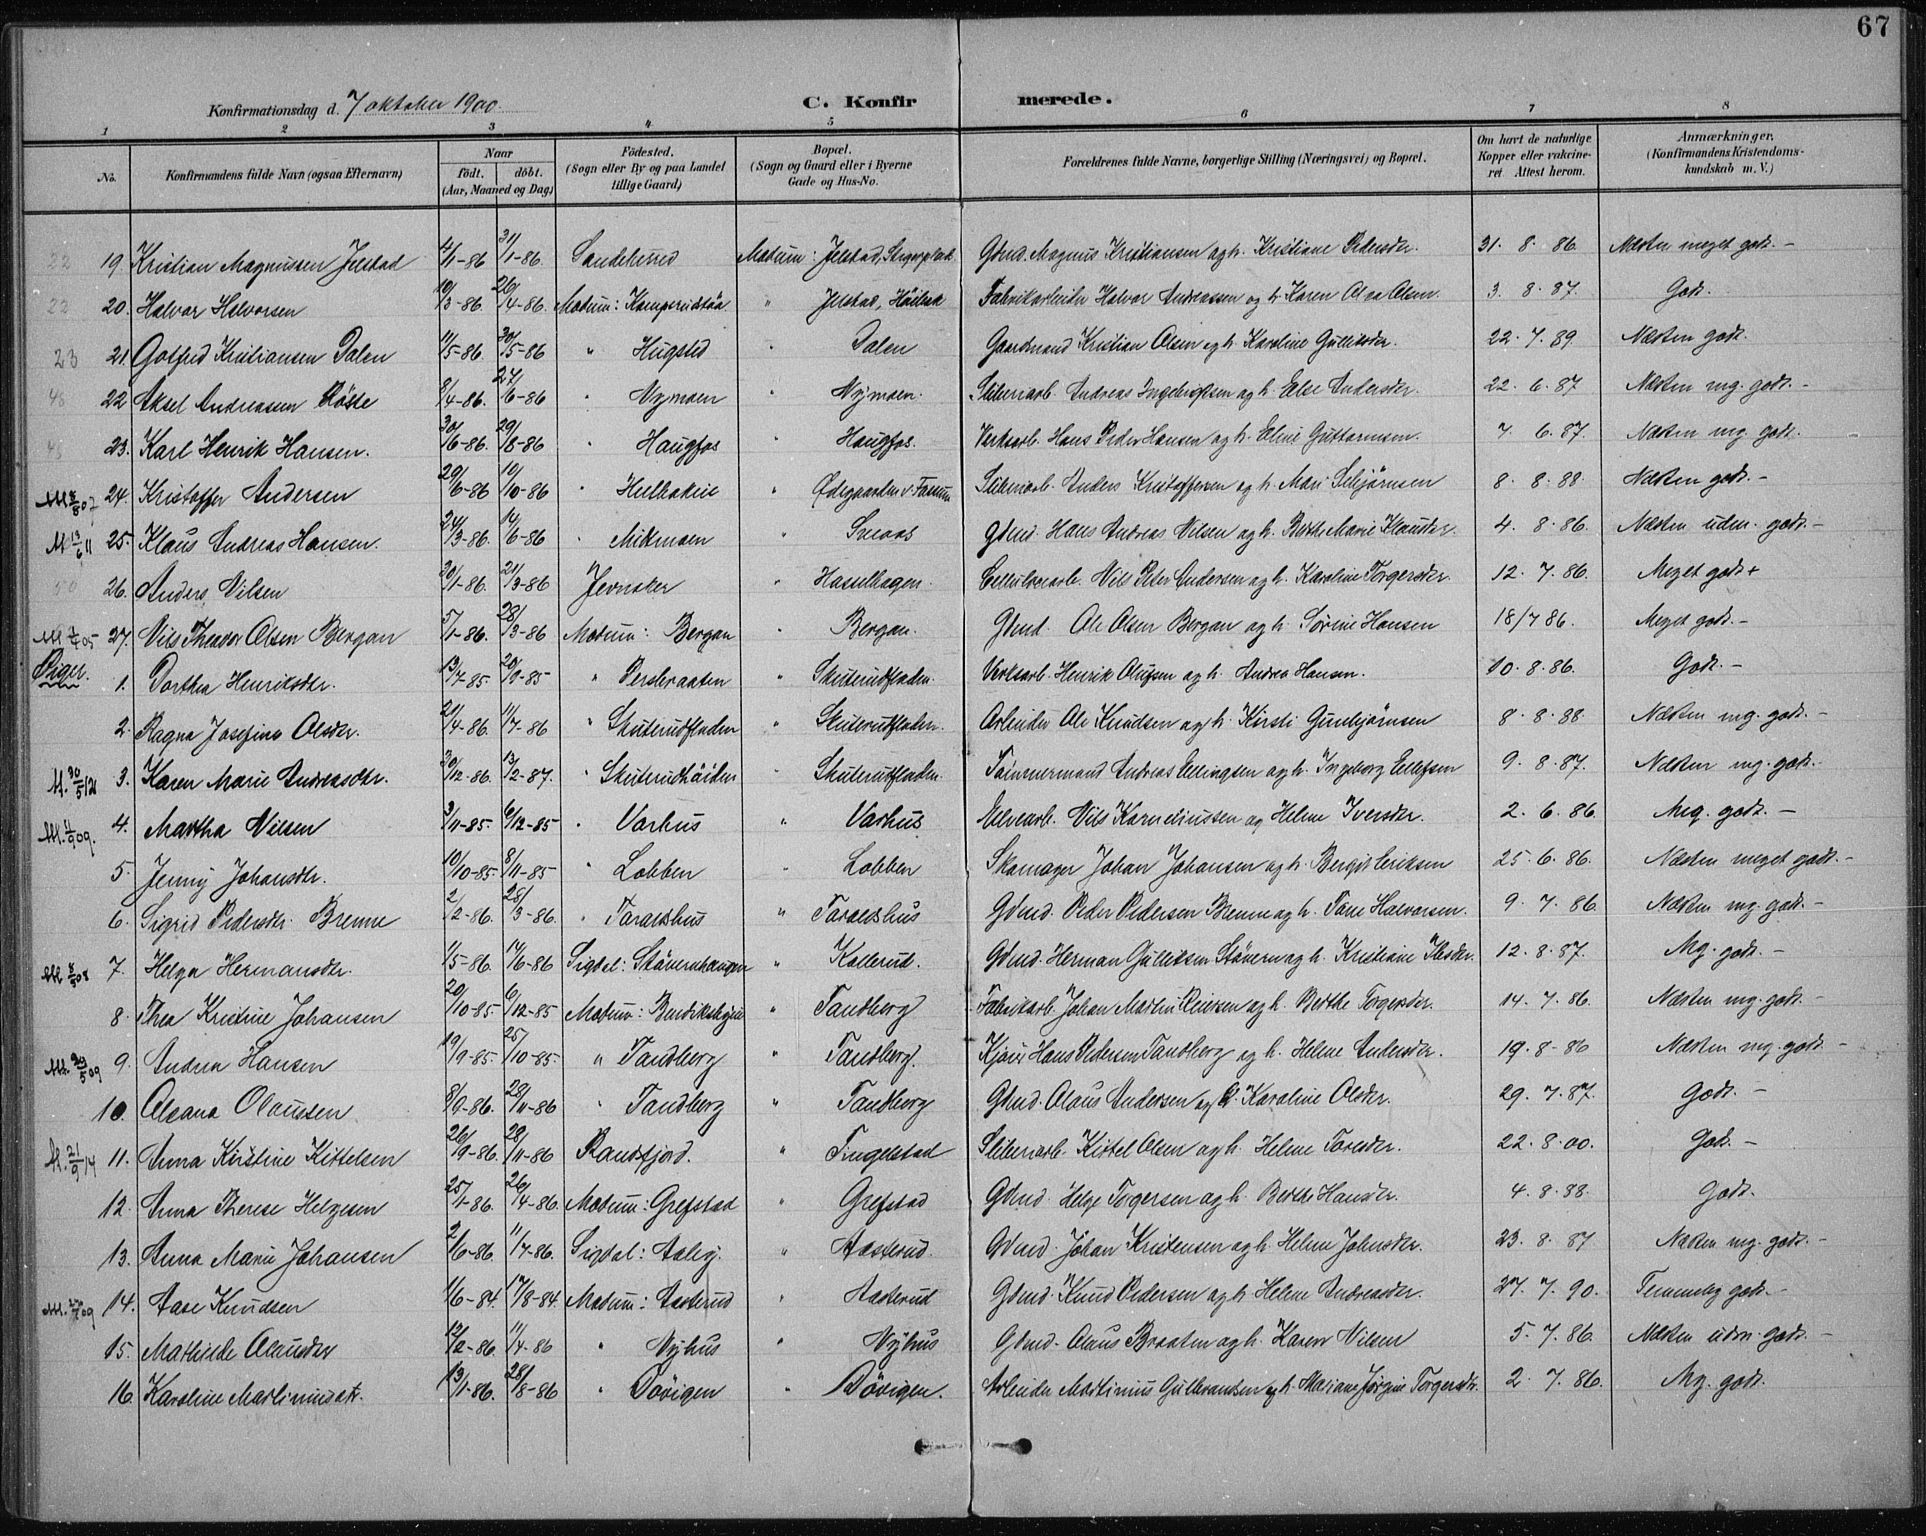 67
Konfirmationsdag d. 7 oktober 1900. C. Konfirmerede.
1 2 3 4 5 6 7 8
No. Konfirmandens fulde Navn (ogsaa Efternavn) Naar født. døbt. (Aar, Maaned og Dag) Fødested. (Sogn eller By og paa Landet tillige Gaard) Bopæl. (Sogn og Gaard eller i Byerne Gade og Hus-No. Forældrenes fulde Navne, borgerlige Stilling (Næringsvei) og Bopæl. Om havt de naturlige Kopper eller vaccineret Attest herom. Anmærkninger. (Konfirmandens Kristendomskundskab m. V.)
19 Kristian Magnussen Jelstad 4/1-86 31/1-86. Sandeherred Modum: Jelstad, Gmd. Magnus Kristiansen og h. Kristiane Pedersdtr. 31. 8. 86 Næsten meget godt. -
20. Halvor Halvorsen 10/3-86. 26/4-86. Modum: " Jelstad, Fabrikarbeider Halvor Andreassen og h. Karen Olea Olsen. 3. 8. 87. Godt.
23 21. Gotfred Kristiansen Dalen 11/5-86. 30/5-86 " Hugsted " Dalen Gaardmand Kristian Olsen og h. Karoline Gulliksdtr. 22. 7. 89. Næsten godt.
22 Aksel Andreassen Røste 8/4-86. 27/6-86 " Nymoen " Nymoen. Sliberiarb. Andreas Ingebretsen og h. Else Andersdtr. 22. 6. 87 Næsten mg. godt. -
23. Karl Henrik Hansen. 30/6-86. 29/8-86 " Haugfos " Haugfos. Verksarb. Hans Peder Hansen og h. Eline Guttormsen. 7. 6. 87. Næsten mg. godt.
24. Kristoffer Andersen 29/6-86 10/10-86 " " Ødegaarden v. Fossum Sliberiarb. Anders Kristoffersen og h. Mari Sebjørnsen 8. 8. 88. Næsten godt. -
M 13/6 11 25. Klaus Andreas Hansen. 24/3-86. 14/6-86 " Mikmoen " Sneaas Gmd. Hans Andreas Nilsen og h. Berthe Marie Klausdtr. 4. 8. 86. Næsten udm. godt. -
50 26. Anders Nilsen 30/1-86. 21/3-86 Jevnaker " Hasselhagen. Cellulosearb. Nils Peter Andersen og h. Karoline Torgersdtr. 12. 7. 86. Meget godt +
27. Nils Theodor Olsen Bergan 5/1-86. 28/3-86 Modum: Bergan " Bergan. Gmd. Ole Olsen Bergan og h. Sørine Hansen 18/7 86. Meget godt. -
Piger.
1. Dorthea Henriksdtr. 13/7-85. 20/9-85 " Persbraaten " Skuterudfladen. Verksarb. Henrik Olufsen og h. Andrea Hansen. 10. 8. 86. Godt. -
2. Ragna Josefine Olsdtr. 21/4-86. 11/7-86 " Skuterudfladen " Skuterudfladen. Arbeider Ole Knudsen og h. Kirsti Gunbjørnsen 8. 8. 88. Næsten mg. godt. -
M. 30/5 12 3. Karen Marie Andreasdtr. 30/12-86. 13/2-87. " Skuterudhøiden " Skuterudfladen. Tømmermand Andreas Ellingsen og h. Ingeborg Ellefsen 9. 8. 87. Næsten mg. godt.
4. Martha Nilsen 3/11-85. 6/12-85 " Varhus " Varhus Elvearb. Nils Korneliussen og Helene Iversdtr. 2. 6. 86. Mg. godt. -
5. Jenny Johansdtr. 10/10-85. 8/11-85 " Lobben " Lobben Skomager Johan Johansen og h. Bergit Eriksen 25. 6. 86. Næsten meget godt. -
6. Sigrid Pedersdtr. Brenne 2/2-86. 28/3-86. " Taraldshus " Taraldshus Gmd. Peder Pedersen Brenne og h. Tone Halvorsen. 9. 7. 86. Næsten mg. godt. -
7. Helga Hermansdtr. 1/5-86. 17/6-86 Sigdal: Støvernhaugen " Kollerud. Gmd. Herman Gulliksen Støvern og h. Kristiane 12. 8. 87. Mg. godt. -
8. Thea Kristine Johansen 20/10-85. 6/12-85 Modum: " Tandberg Fabrikarb. Johan Martin Reiersen og h. Berthe Torgersdtr. 14. 7. 86. Næsten mg. godt. -
9. Andrea Hansen 19/9-85. 25/10-85. " Tandberg " Tandberg. Kjører Hans Pedersen Tandberg og h. Helene Andersdtr. 19. 8-86 Næsten mg. godt. -
10. Oleana Olaussen 8/9-86. 28/11-86 " Tandberg " Tandberg Gmd. Olaus Andersen og h. Karoline Olsdtr. 29. 7. 87. Godt. -
M. 21/9 14 11. Anna Kirstine Kittelsen 26/9-86. 28/11-86 Randsfjord. " Tingelstad Sliberiarb. Kittel Olsen og h. Helene Toresdtr. 22. 8. 00. Godt. -
12. Anna Therese Helgesen 25/1-86. 26/4-86. Modum: Grefstad " Grefstad Gmd. Helge Torgersen og h. Berthe Hansdtr. 4. 8. 88. Godt.
13. Anna Marie Johansen 2/6-86. 11/7-86. Sigdal: Aaby. " Aasterud. Gmd. Johan Kristensen og h. Helene Johnsdtr. 23. 8. 87 Næsten mg. godt. -
14. Aase Knudsen 1/6-84. 17/8-84. Modum: Aasterud " Aasterud Gmd. Knud Pedersen og h. Helene Andreasdtr. 27. 7. 90. Temmelig godt. -
15. Mathilde Olausdtr 12/2-86. 11/4-86 " Nyhus " Nyhus Gmd. Olaus Braaten og h. Karen Nilsen 5. 7. 86. Næsten udm. godt. -
16. Karoline Martiniusdtr. 13/1-86. 28/8-86 " Døvigen " Døvigen. Arbeider Martinius Gulbrandsen og h. Mariane Jørgine Torgersdtr. 2. 7. 86. Mg. godt.